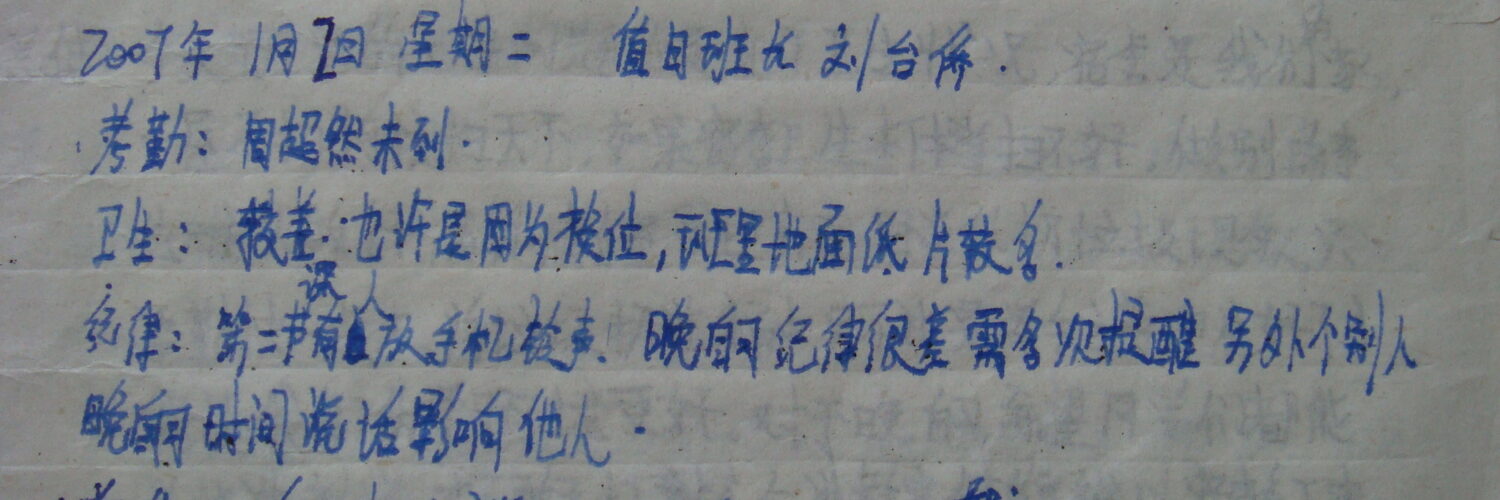 2007年 1月2日 星期二 值日班长 刘台侨.
考勤: 周超然未到.
卫生: 较差.也许是因为换位,班里地面纸片较多.
纪律: 第二节课有人放手机铃声. 晚自习纪律很差需多次提醒 另外个别人
晚自习时间说话影响他人.